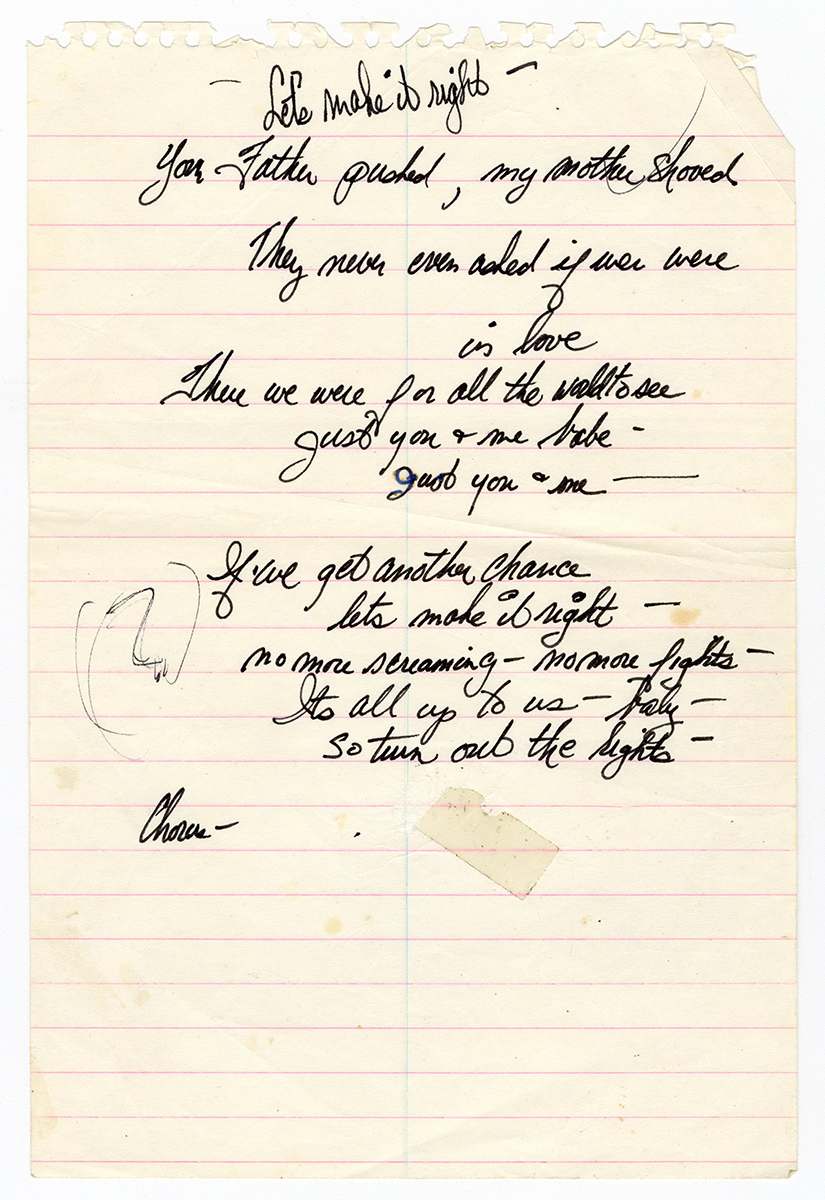 — Let's make it right —
Your Father pushed, my mother shoved
They never even asked if wer were
in love
There we were for all the world to see
Just you & me babe -
Just you & me —
If we get another chance
lets make it right —
no more screaming - no more fights -
Its all up to us - Baby -
so turn out the lights -
Chorus -